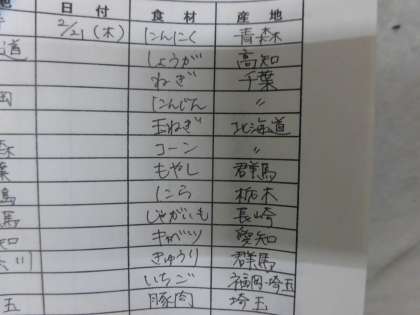 日付 食材 産地
2/21(木) にんにく 青森
道 しょうが 高知
ねぎ 千葉
岡 にんじん 〃
玉ねぎ 北海道
森 コーン 〃
葉 もやし 群馬
島 にら 栃木
馬 じゃがいも 長崎
知 キャベツ 愛知
きゅうり 群馬
いちご 福岡・埼玉
玉 豚肉 埼玉